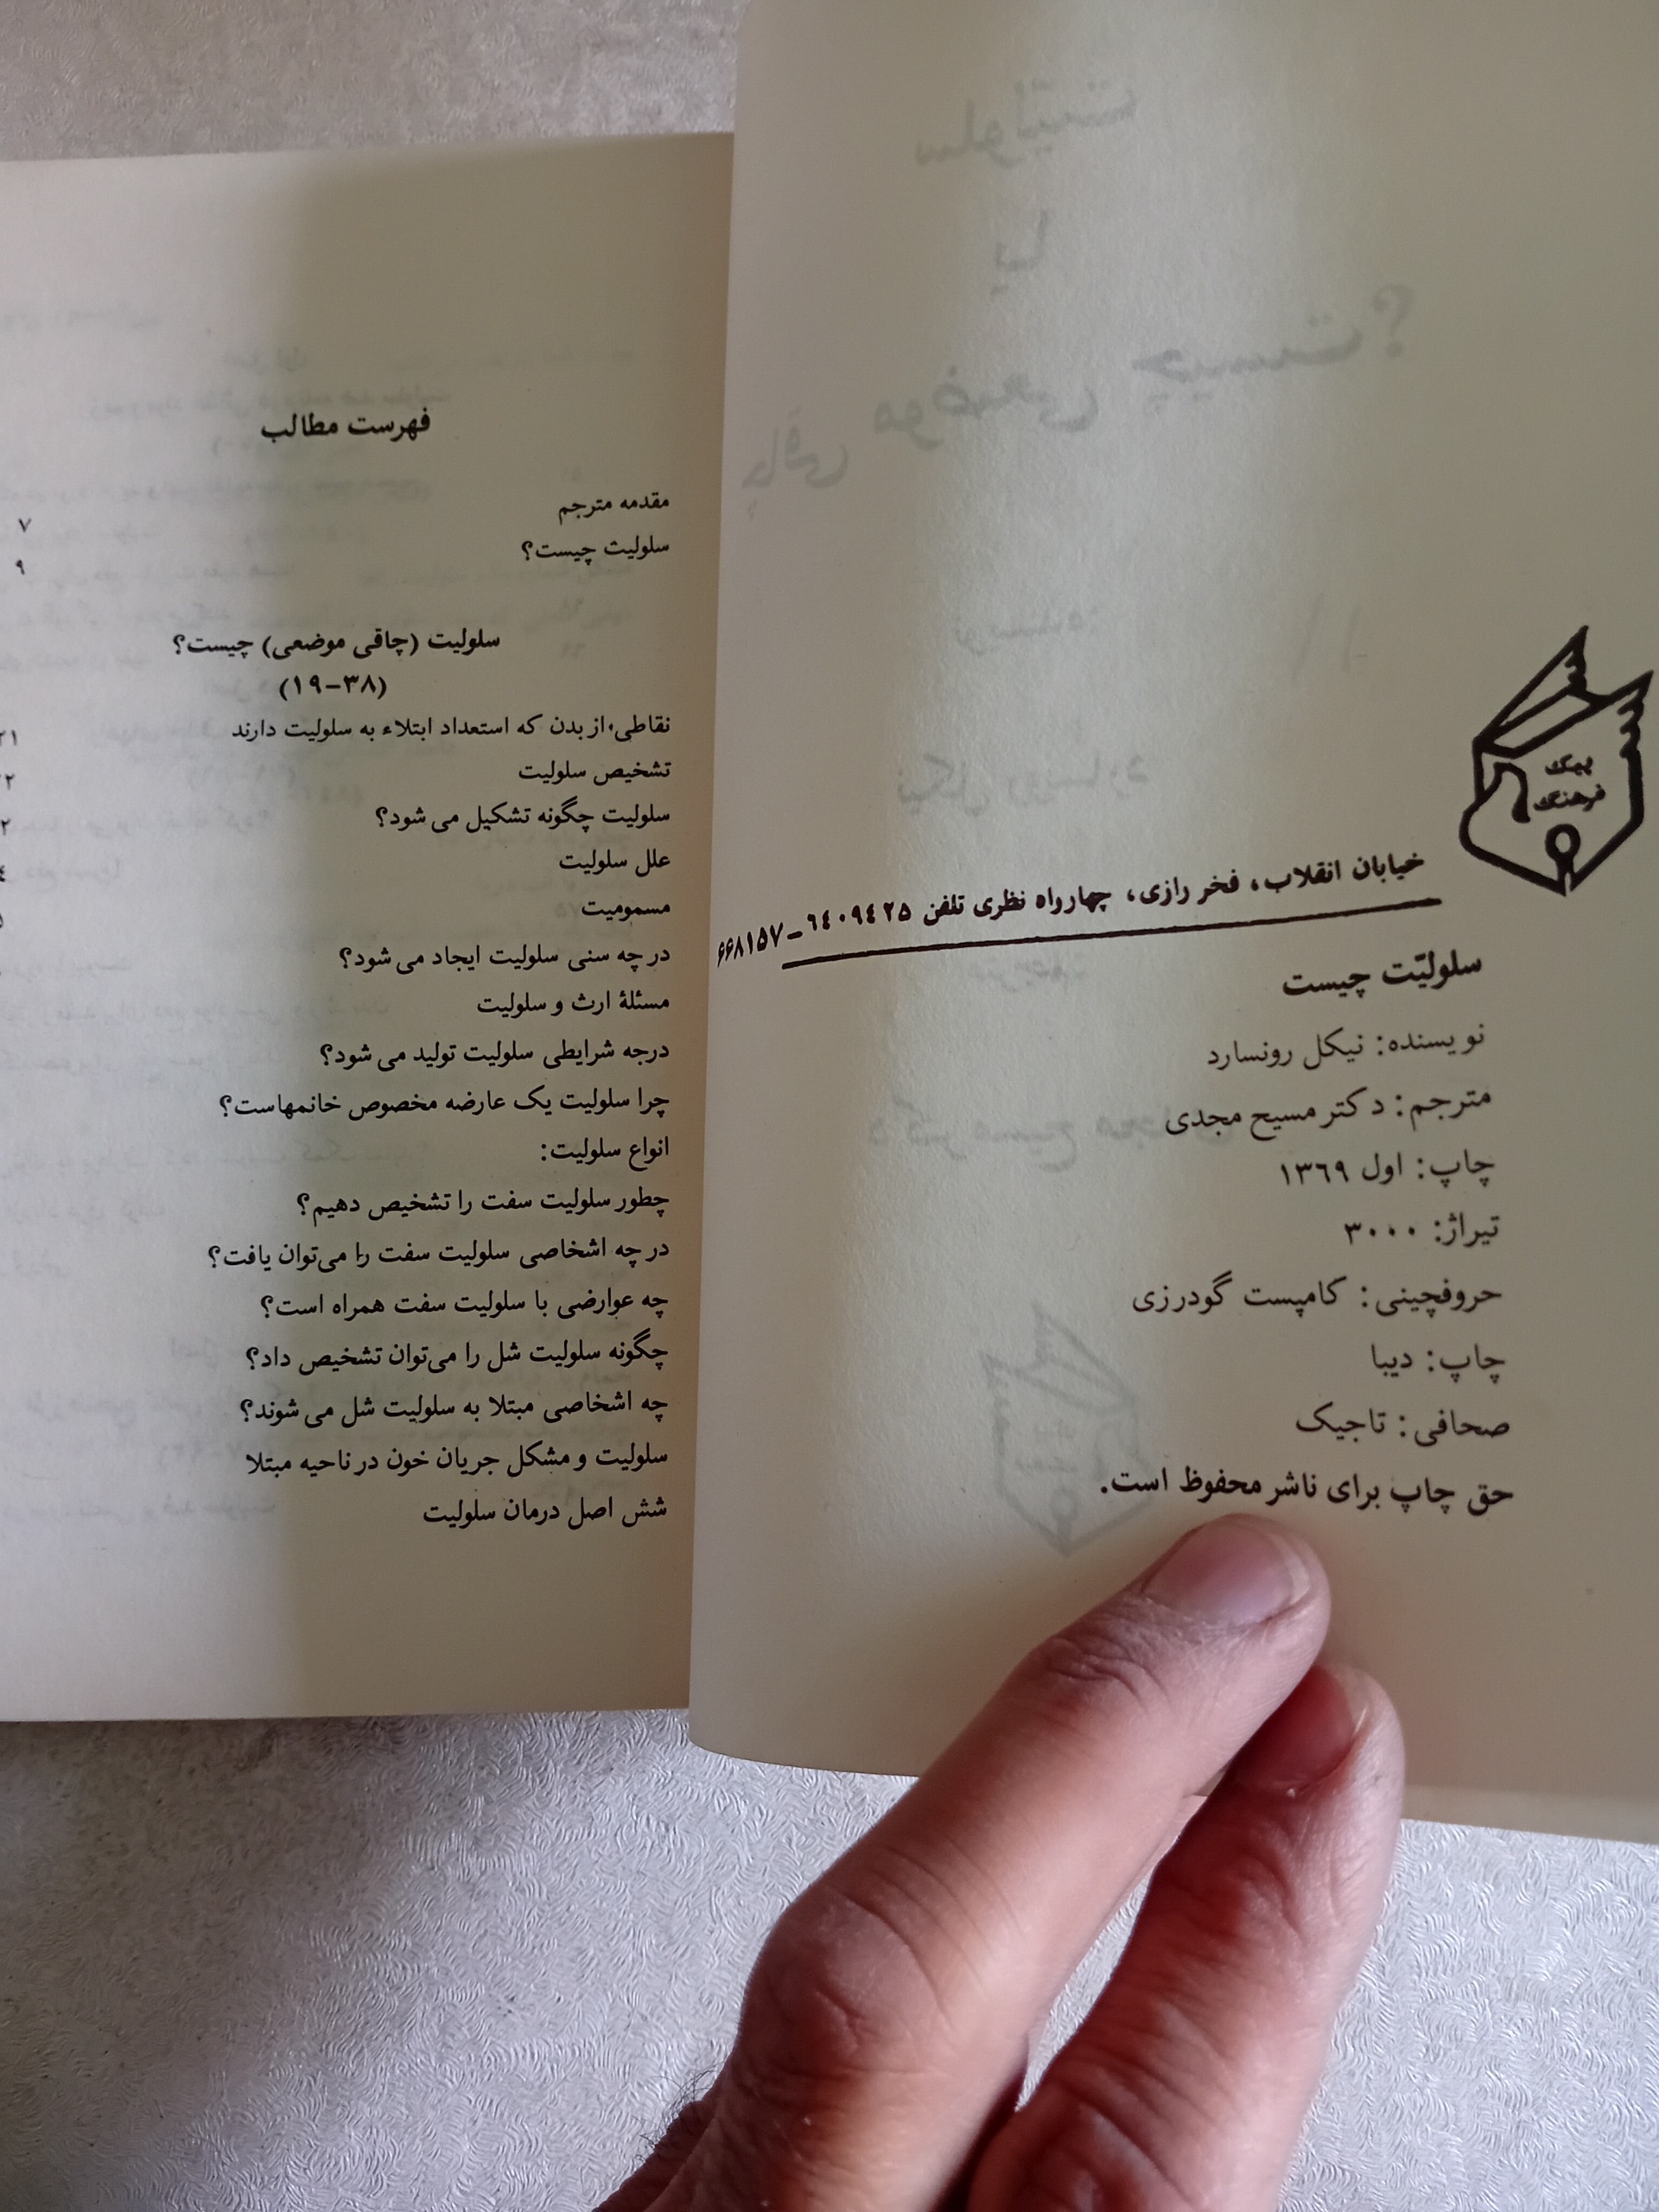 پیک
فرهنگ
خیابان انقلاب، فخر رازی، چهارراه نظری تلفن ۶۴۰۹۴۲۵ - ۶۶۸۱۵۷
سلولیّت چیست
نویسنده: نیکل رونسارد
مترجم: دکتر مسیح مجدی
چاپ: اول ۱۳۶۹
تیراژ: ۳۰۰۰
حروفچینی: کامپست گودرزی
چاپ: دیبا
صحافی: تاجیک
حق چاپ برای ناشر محفوظ است.
فهرست مطالب
مقدمه مترجم ۷
سلولیت چیست؟ ۹
سلولیت (چاقی موضعی) چیست؟
(۱۹-۳۸)
نقاطی از بدن که استعداد ابتلاء به سلولیت دارند ۲۱
تشخیص سلولیت
سلولیت چگونه تشکیل می شود؟
علل سلولیت
مسمومیت
در چه سنی سلولیت ایجاد می شود؟
مسئلهٔ ارث و سلولیت
درچه شرایطی سلولیت تولید می شود؟
چرا سلولیت یک عارضه مخصوص خانمهاست؟
انواع سلولیت:
چطور سلولیت سفت را تشخیص دهیم؟
در چه اشخاصی سلولیت سفت را می‌توان یافت؟
چه عوارضی با سلولیت سفت همراه است؟
چگونه سلولیت شل را می‌توان تشخیص داد؟
چه اشخاصی مبتلا به سلولیت شل می شوند؟
سلولیت و مشکل جریان خون در ناحیه مبتلا
شش اصل درمان سلولیت